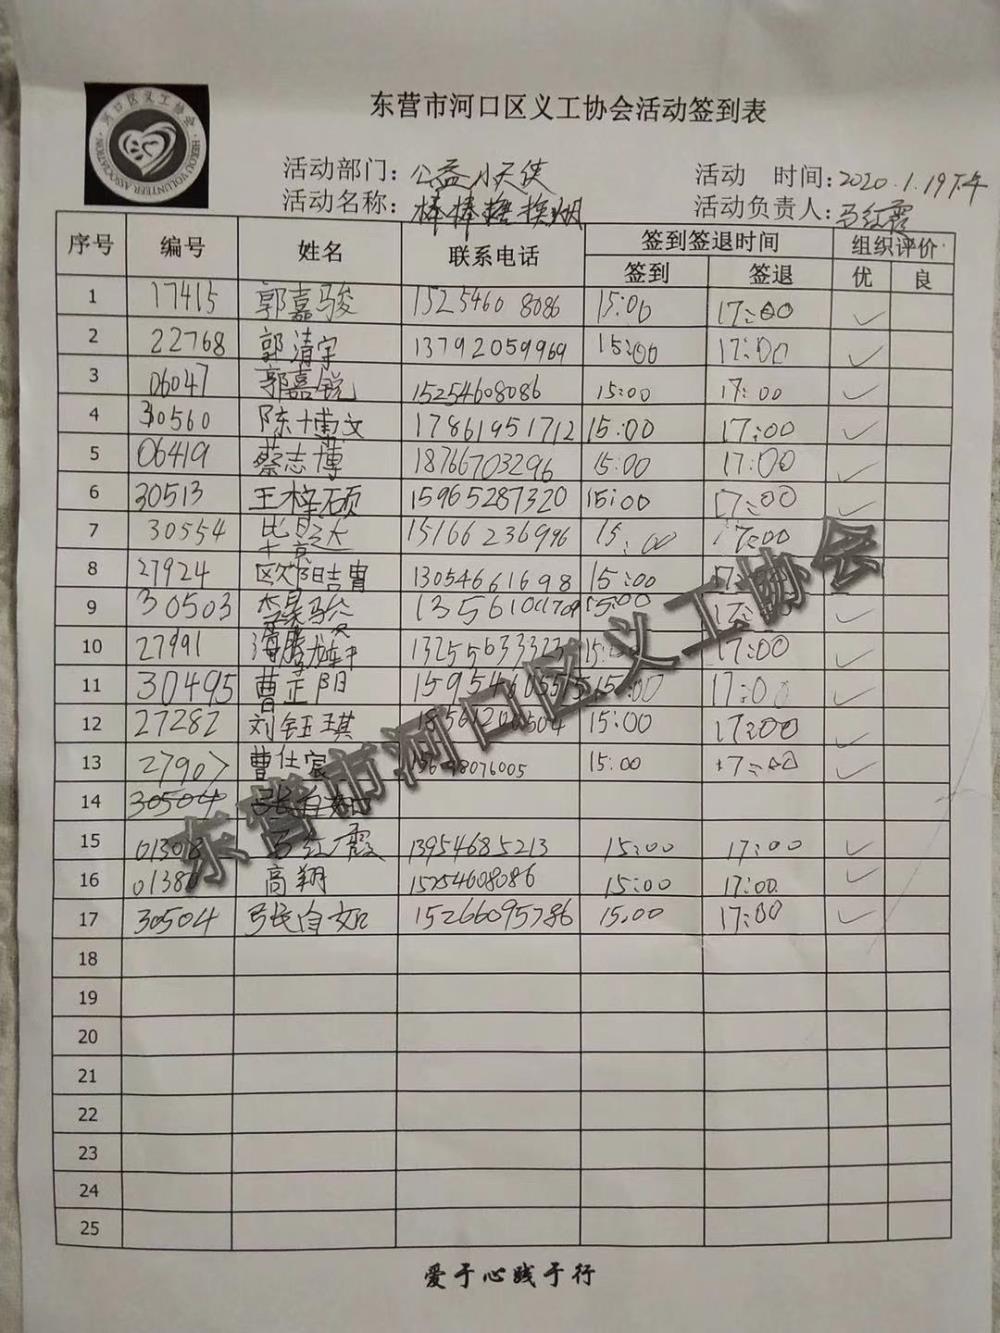 河口区义工协会
HEKOU VOLUNTEER ASSOCIATION
东营市河口区义工协会活动签到表
活动部门：公益小天使 活动 时间：2020.1.19下午
活动名称：棒棒糖换烟 活动负责人：马红霞
序号 编号 姓名 联系电话 签到签退时间 组织评价
签到 签退 优 良
1 17415 郭嘉骏 15254608086 15:00 17:00 ✓
2 22768 郭清宇 13792059969 15:00 17:00 ✓
3 06047 郭嘉锐 15254608086 15:00 17:00 ✓
4 30560 陈博文 17861951712 15:00 17:00 ✓
5 06419 蔡志博 18766703296 15:00 17:00 ✓
6 30513 王梓硕 15965287320 15:00 17:00 ✓
7 30554 15166236996 15:00 17:00
8 27924 欧阳吉胄 13054661698 15:00 17:00
9 30503 15:00 17:00 ✓
10 27991 15:00 17:00 ✓
11 30495 曹芷阳 15:00 17:00 ✓
12 27282 刘钰琪 15:00 17:00 ✓
13 27907 曹仕宸 15:00 17:00 ✓
14 30504 张自如
15 马红霞 13954685213 15:00 17:00 ✓
16 高翔 15254608086 15:00 17:00 ✓
17 30504 张自如 15266095786 15:00 17:00 ✓
18
19
20
21
22
23
24
25
爱于心践于行
东营市河口区义工协会